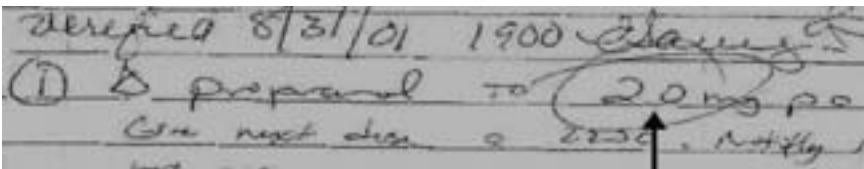 Verified 8/31/01 1900
① Δ propranol to 20 mg po
Give next dose @ 2200. Notify